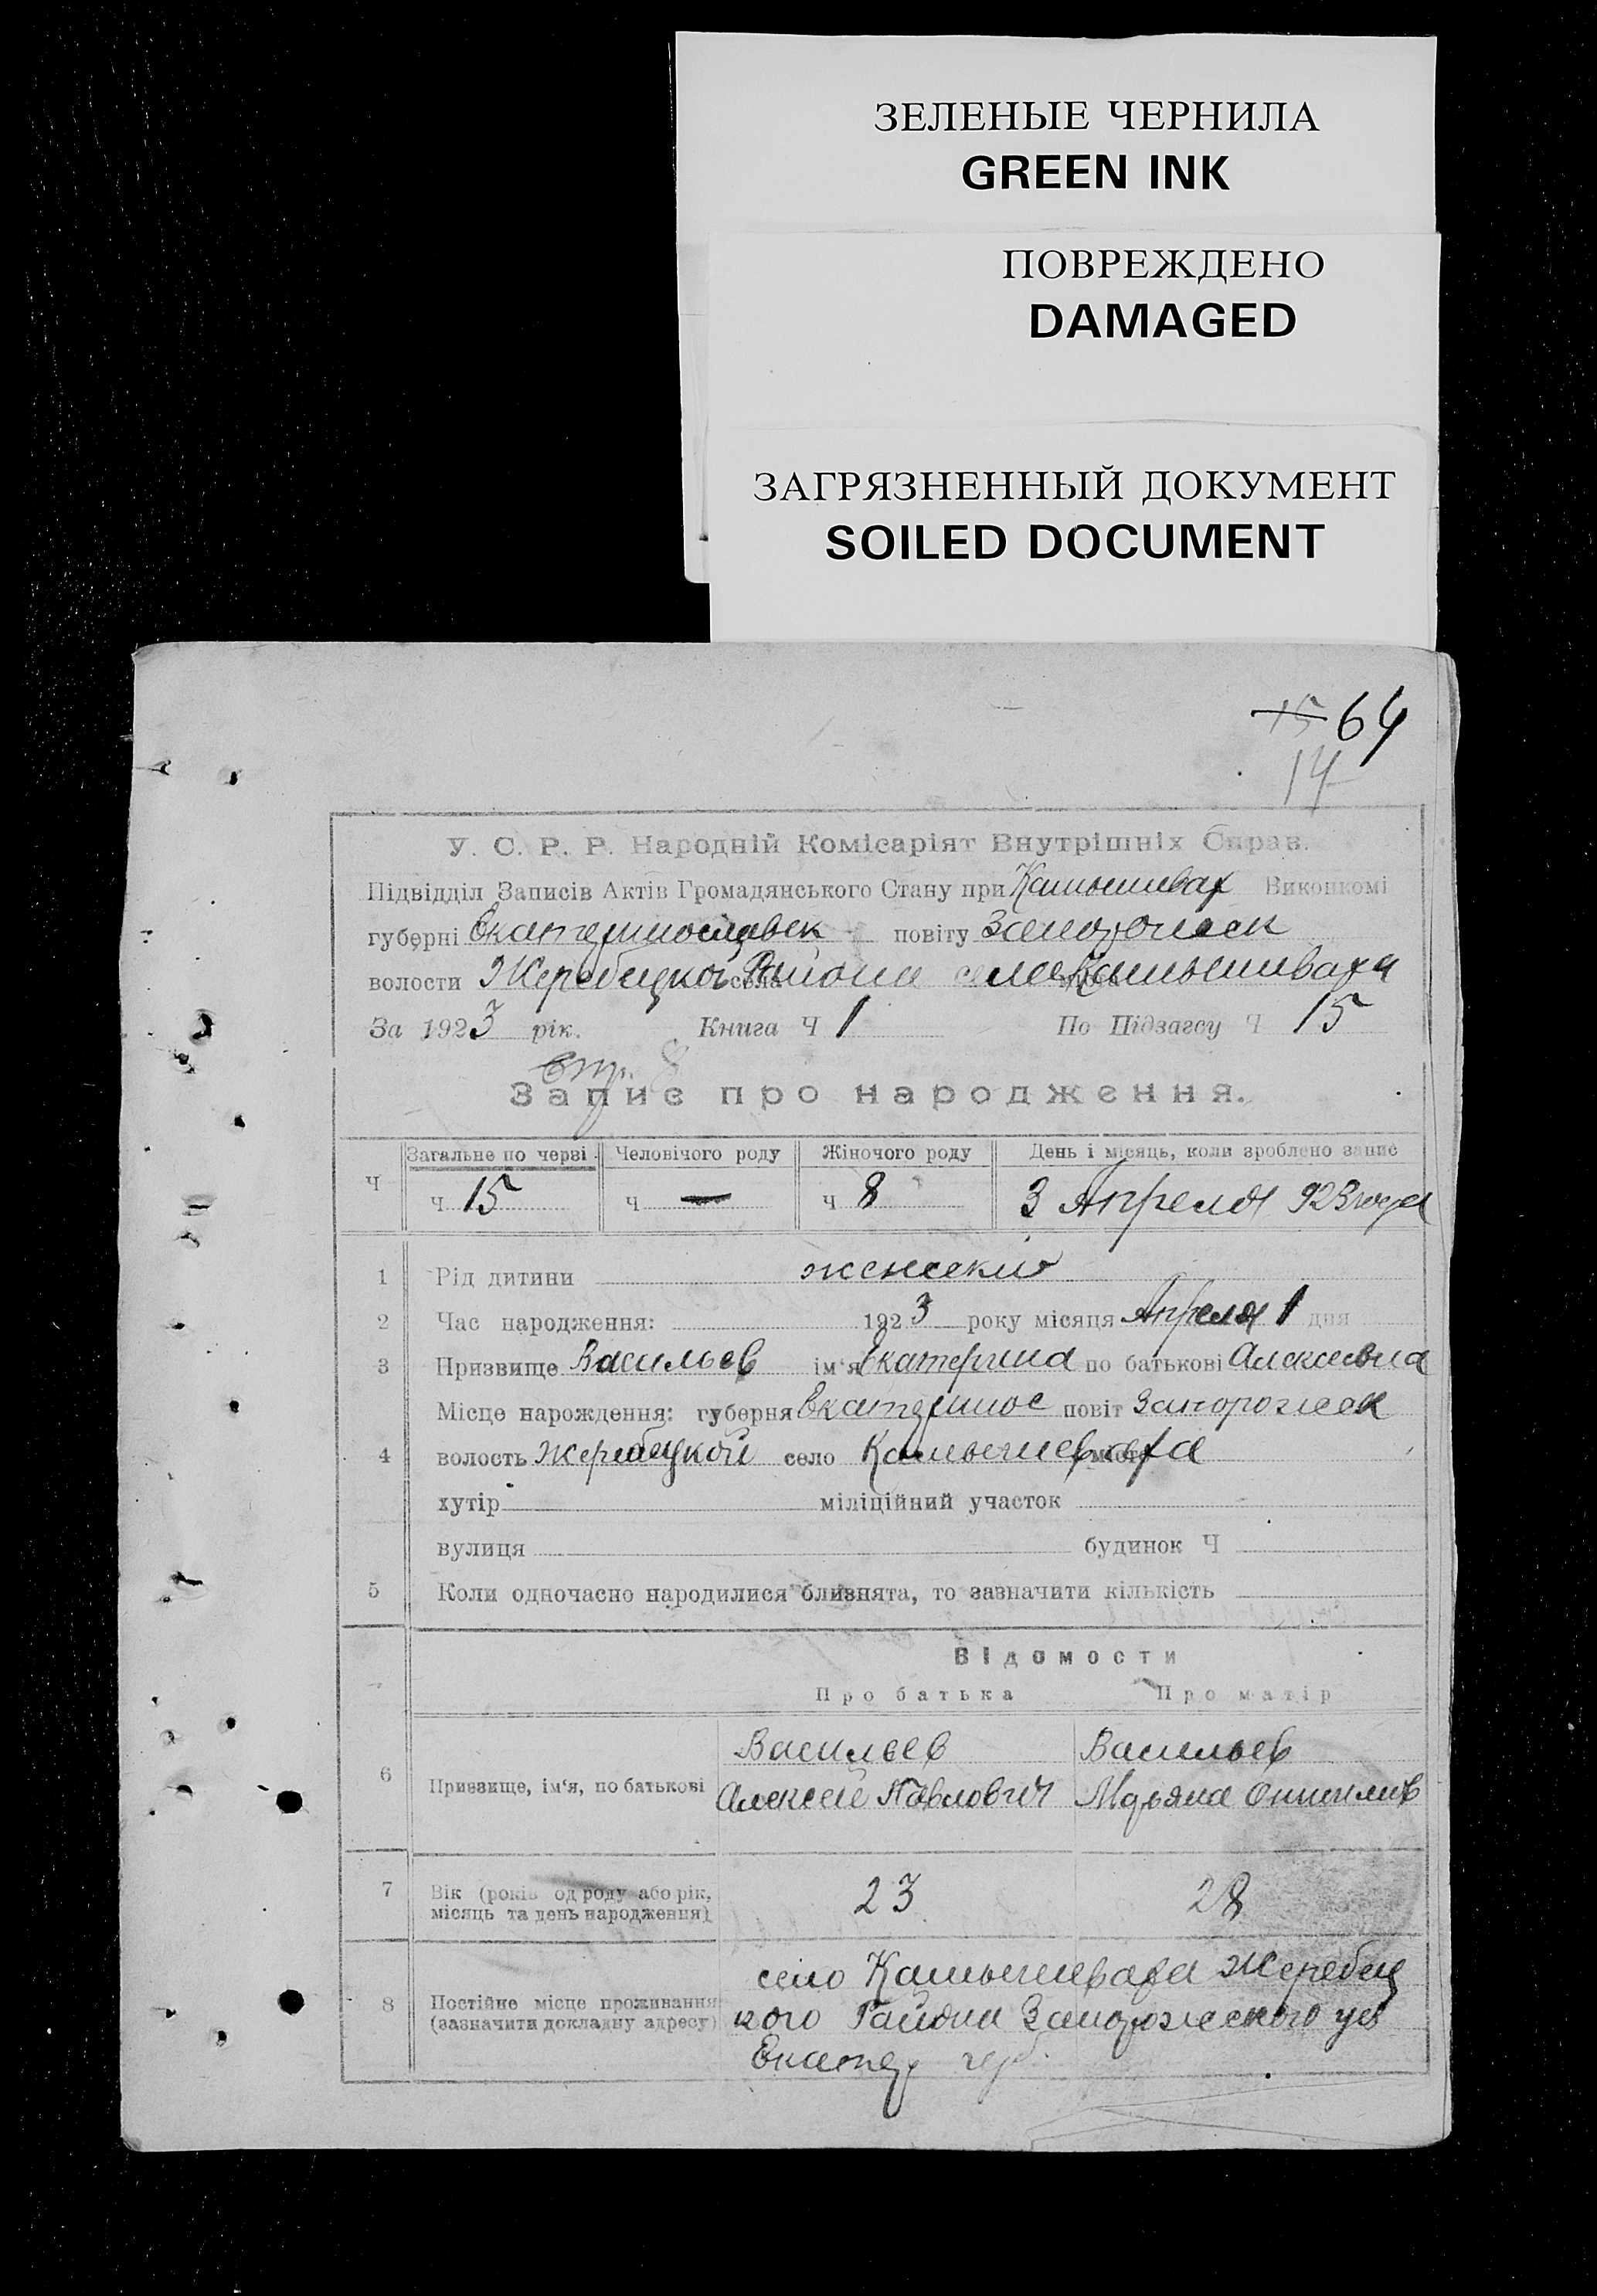 ЗЕЛЕНЫЕ ЧЕРНИЛА
GREEN INK
ПОВРЕЖДЕНО
DAMAGED
ЗАГРЯЗНЕННЫЙ ДОКУМЕНТ
SOILED DOCUMENT
15 64
14
У. С. Р. Р. Народній Комісаріят Внутрішніх Справ.
Підвідділ Записів Актів Громадянського Стану при Камышевах Виконкомі
губерні Екатеринославск повіту Запорожск
волости Жеребецкой села Района села Камышеваха
За 1923 рік. Книга Ч 1 По Підзагсу Ч 15
Стр. 8
Запис про народження.
Ч Загальне по черзі Человічого роду Жіночого роду День і місяць, коли зроблено запис
ч 15 ч — ч 8 3 Апреля 923 года
1 Рід дитини женский
2 Час народження: 1923 року місяця Апреля 1 дня
3 Призвище Васильев ім'я Екатерина по батькові Алексеевна
Місце нарождення: губерня Екатеринос повіт Запорожск
4 волость Жеребецкой село Камышеваха
хутір міліційний участок
вулиця будинок Ч
5 Коли одночасно народилися близнята, то зазначити кількість
Відомости
Про батька Про матір
6 Призвище, ім'я, по батькові Васильев Васильев
Алексей Павлович
7 Вік (років од роду або рік, місяць та день народження) 23 28
8 Постійне місце проживання (зазначити докладну адресу)
село Камышеваха Жеребец
кого Района Запорожского уез
Екатер губ.